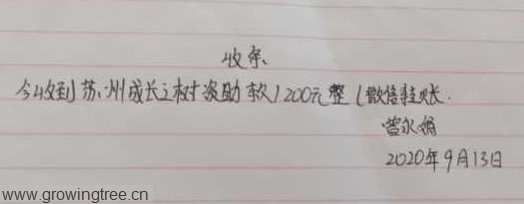 收条
今收到苏州成长之树资助款1200元整(微信转账.
曾永娟
2020年9月13日
www.growingtree.cn